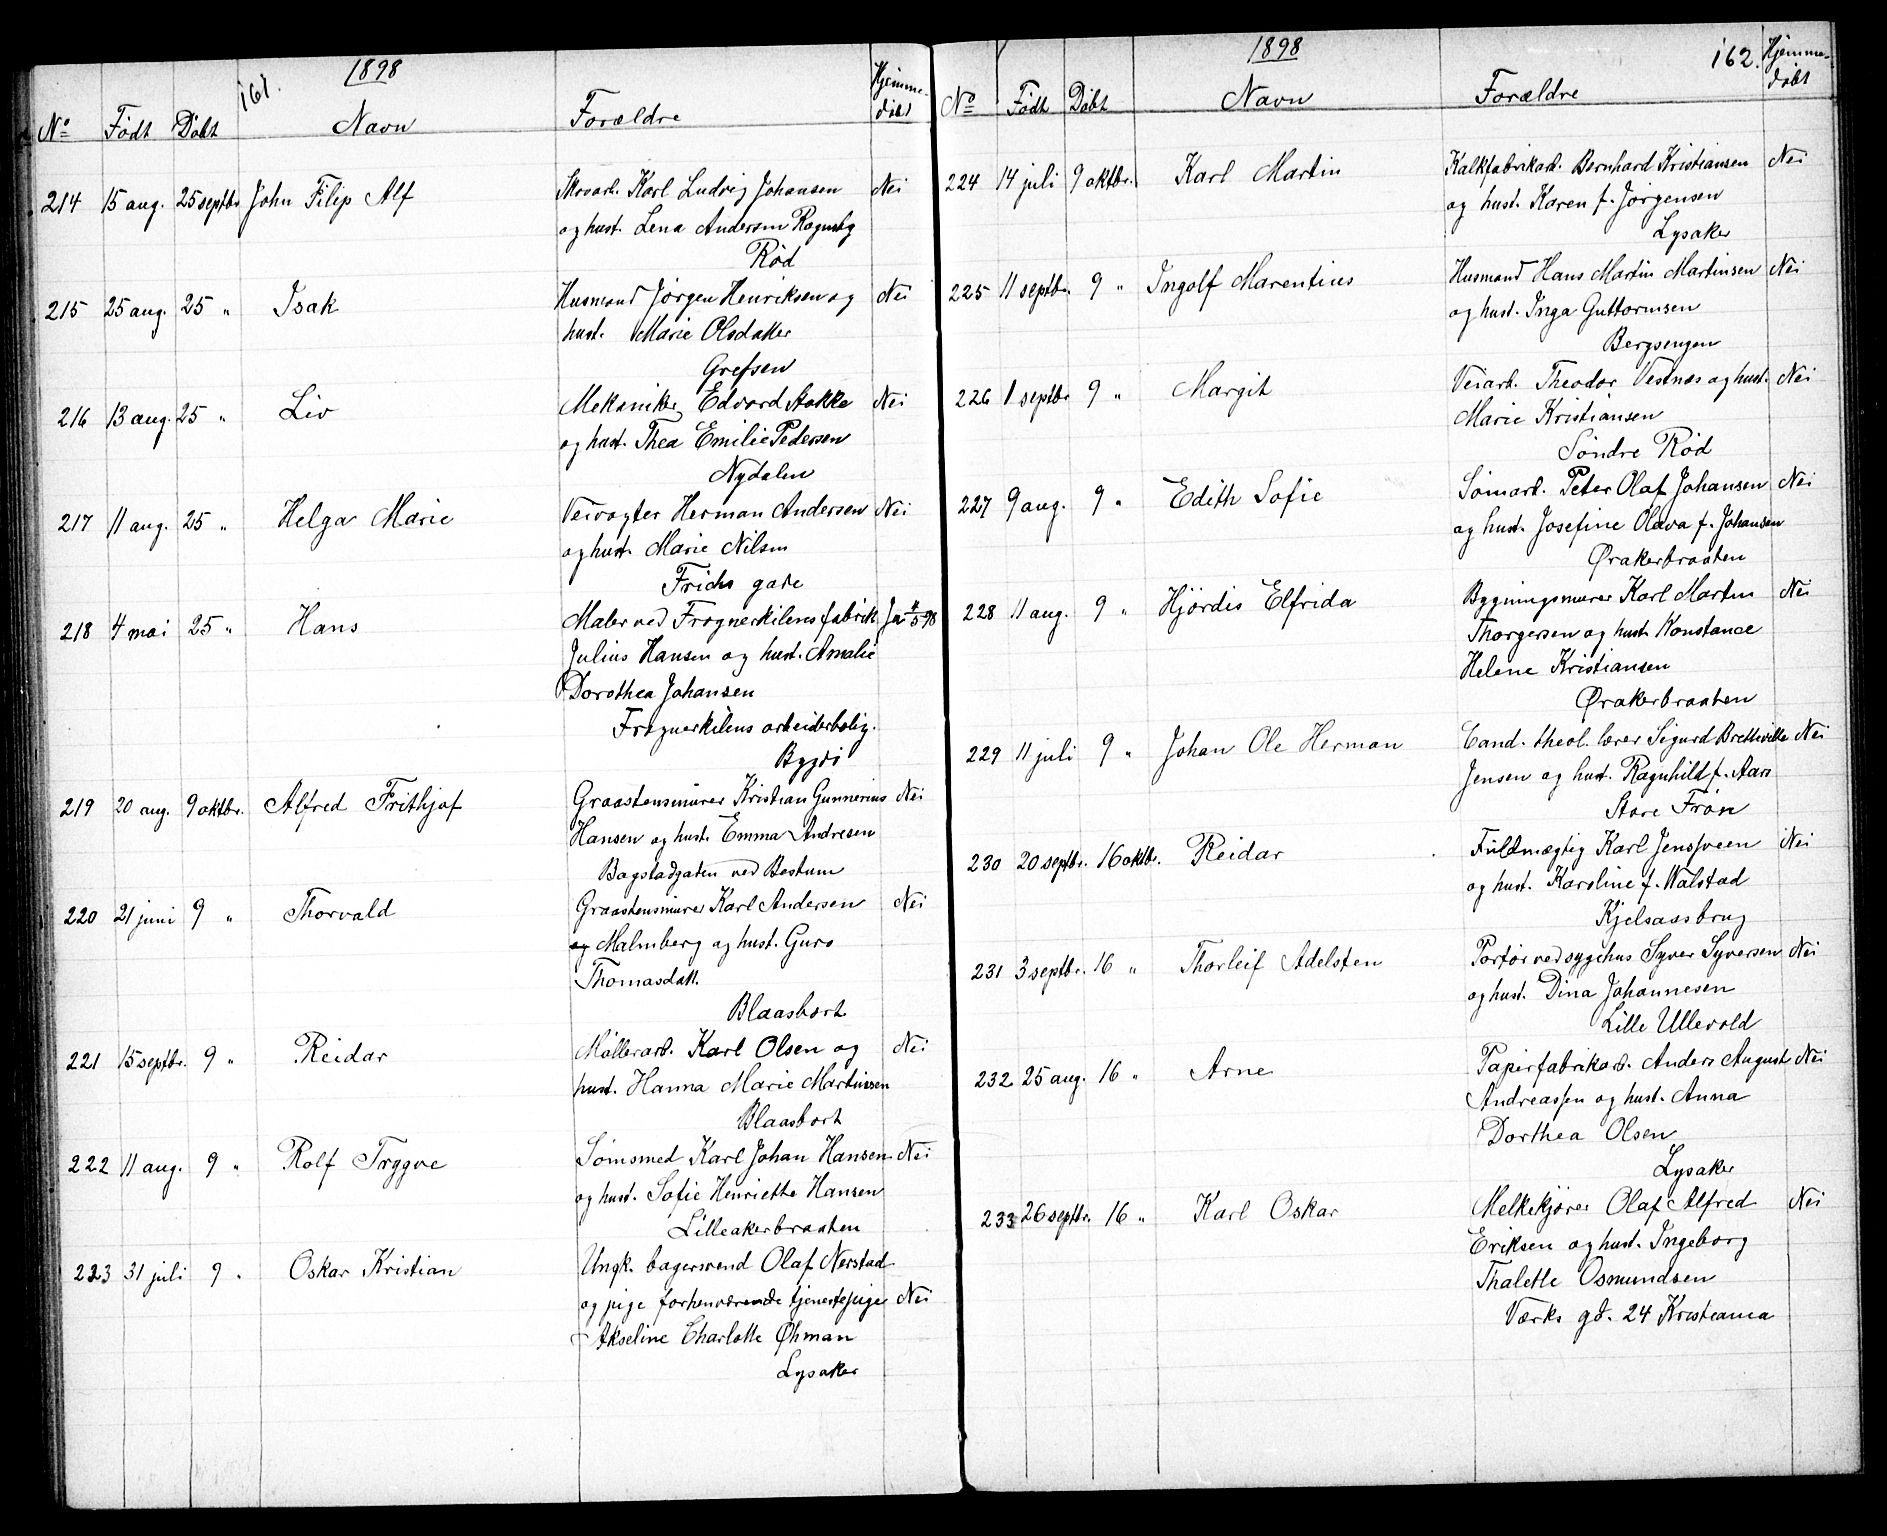 161.
1898
No Født Døbt Navn Forældre Hjemmedøbt
214 15 aug. 25 septbr John Filip Alf Skoarb. Karl Ludvig Johansen Nei
og hust. Lena Anderson
Rød
215 25 aug. 25 " Isak Husmand Jørgen Henriksen og Nei
hust. Marie Olsdatter
Grefsen
216 13 aug. 25 " Liv Mekaniker Edvard Stokke Nei
og hust. Thea Emilie Pedersen
Nydalen
217 11 aug. 25 " Helga Marie Veivogter Herman Andersen Nei
og hust. Marie Nilsen
Frichs gade
218 4 mai 25 " Hans Maler ved Frognerkilens fabrik Ja 4/5 98
Julius Hansen og hust. Amalie
Dorothea Johansen
Frognerkilens arbeiderbolig.
Bygdø
219 20 aug. 9 oktbr. Alfred Frithjof Graastensmurer Kristian Gunnerius Nei
Hansen og hust. Emma Andresen
Bagstadgaten ved Bestum
220 21 juni 9 " Thorvald Graastensmurer Karl Andersen Nei
og Malmberg og hust. Guro
Thomasdatt.
Blaasbort
221 15 septbr. 9 " Reidar Møllerarb. Karl Olsen og Nei
hust. Hanna Marie Martinsen
Blaasbort
222 11 aug. 9 " Rolf Tryggve Sømsmed Karl Johan Hansen Nei
og hust. Sofie Henriette Hansen
Lilleakerbraaten
223 31 juli 9 " Oskar Kristian Ungk. bagersvend Olaf Nerstad
og pige forhenværende tjenestepige Nei
Akseline Charlotte Øhman
Lysaker
1898
162.
No Født Døbt Navn Forældre Hjemmedøbt
224 14 juli 9 oktbr. Karl Martin Kalkfabrikarb. Bernhard Kristiansen Nei
og hust. Karen f. Jørgensen
Lysaker
225 11 septbr. 9 " Ingolf Marentius Husmand Hans Martin Martinsen Nei
og hust. Inga Guttormsen
Bergsengen
226 1 septbr 9 " Margit Veiarb. Theodor Vestnæs og hust. Nei
Marie Kristiansen
Søndre Rød
227 9 aug. 9 " Edith Sofie Sømarb. Peter Olaf Johansen Nei
og hust. Josefine Olava f. Johansen
Ørakerbraaten
228 11 aug. 9 " Hjørdis Elfrida Bygningsmurer Karl Martin Nei
Thorgersen og hust. Konstance
Helene Kristiansen
Ørakerbraaten
229 11 juli 9 " Johan Ole Herman Cand. theol. lærer Sigurd Bretteville Nei
Jensen og hust. Ragnhild f. Aars
Store Frøn
230 20 septbr. 16 oktbr. Reidar Fuldmægtig Karl Jenssveen Nei
og hust. Karoline f. Walstad
Kjelsaasbrug
231 3 septbr. 16 " Thorleif Adelsten Portør ved sygehus Syver Syversen Nei
og hust. Dina Johannesen
Lille Ullevold
232 25 aug. 16 " Arne Papirfabrikarb. Anders August Nei
Andreassen og hust. Anna
Dorthea Olsen
Lysaker
233 26 septbr. 16 " Karl Oskar Melkekjører Olaf Alfred Nei
Eriksen og hust. Ingeborg
Thalette Osmundsen
Værks gd. 24 Kristiania